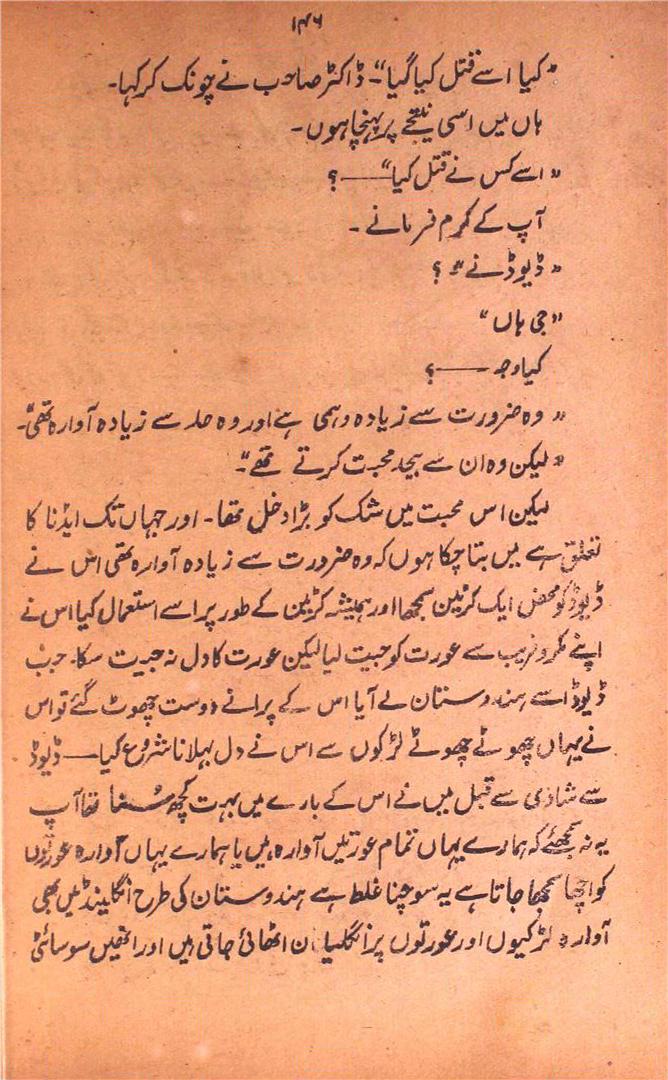 ۱۴۶
"کیا اسے قتل کیا گیا"۔ ڈاکٹر صاحب نے چونک کر کہا۔
ہاں میں اسی نتیجے پر پہنچا ہوں۔
"اسے کس نے قتل کیا"——؟
آپ کے کرم فرمانے۔
"ڈیوڈ نے"؟
"جی ہاں"
کیا وجہ——؟
"وہ ضرورت سے زیادہ وہمی ہے اور وہ حد سے زیادہ آوارہ تھی"۔
"لیکن وہ ان سے بیحد محبت کرتے تھے"۔
لیکن اس محبت میں شک کو بڑا دخل تھا۔ اور جہاں تک ایڈنا کا
تعلق ہے میں بتا چکا ہوں کہ وہ ضرورت سے زیادہ آوارہ تھی اس نے
ڈیوڈ کو محض ایک کرنین سمجھا اور ہمیشہ کرنین کے طور پر اسے استعمال کیا اس نے
اپنے مکر و فریب سے عورت کو جیت لیا لیکن عورت کا دل نہ جیت سکا۔ جب
ڈیوڈ اسے ہندوستان لے آیا اس کے پرانے دوست چھوٹ گئے تو اس
نے یہاں چھوٹے چھوٹے لڑکوں سے اس نے دل بہلانا شروع کیا—— ڈیوڈ
سے شادی سے قبل میں نے اس کے بارے میں بہت کچھ سنا تھا آپ
یہ نہ سمجھئے کہ ہمارے یہاں تمام عورتیں آوارہ ہیں یا ہمارے یہاں آوارہ عورتوں
کو اچھا سمجھا جاتا ہے یہ سوچنا غلط ہے ہندوستان کی طرح انگلینڈ میں بھی
آوارہ لڑکیوں اور عورتوں پر انگلیاں ان اٹھائی جاتی ہیں اور انھیں سوسائٹی